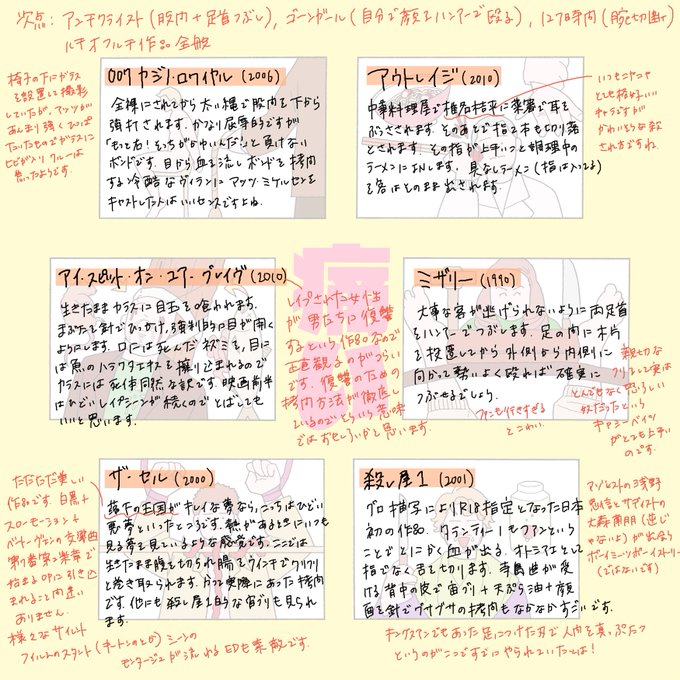 次点: アンチクライスト(股肉+足首つぶし), ゴーンガール(自分で顔をハンマーで殴る), 127時間(腕切断)
ルチオフルチ作品全般
007 カジノ・ロワイヤル (2006)
全裸にされてから太い縄で股肉を下から
強打されます. かなり屈辱的ですが
「もっと右! そっちがかゆいんだ!」と負けない
ボンドです. 目から血を流しボンドを拷問
する冷酷なヴィランにマッツ・ミケルセンを
キャストした人はいいセンスですよね.
椅子の下にガラス
を設置して撮影
していたが, マッツが
あんまり強くひっぱ
たいたものでガラスに
ヒビが入りクルーは
焦ったようです.
アウトレイジ (2010)
中華料理屋で椎名桔平に菜箸で耳を
ぶっさされます. そのあとで指2本も切り落
とされます. その指が上手いこと調理中の
ラーメンにINします. 具なしラーメン(指は入ってる)
を客はそのまま出されます.
いつもニヤニヤ
とても格好いい
キャラですが
かわいそうな殺
され方ですね.
アイ・スピット・オン・ユア・グレイヴ (2010)
生きたままカラスに目玉を喰われます.
まぶたを針でひっかけ, 強制的に目が開く
ようにします. 口には死んだネズミを, 目に
は魚のハラワタエキスを擦り込まれるので
カラスには死体同然な訳です. 映画前半
はひどいレイプシーンが続くのでとばしても
いいと思います.
レイプされた女性
が男たちに復讐
するという作品なので
色々観るのがつらい
です. 復讐のための
拷問方法が徹底し
ているのでそういう意味
ではおもしろいかと思います.
痛
ミザリー (1990)
大事な客が逃げられないように両足首
をハンマーでつぶします. 足の内に木片
を設置してから外側から内側に
向かって勢いよく殴れば確実に
つぶせるでしょう.
ファンも行きすぎる
とこわい.
親切な
クリして実は
とんでもなく恐ろしい
奴だったという
キャシー・ベイツ
がとても上手い
のです.
ザ・セル (2000)
落下の王国がキレイな夢なら, こっちはひどい
悪夢といったところです. 熱があるときにいつも
見る夢を見ているような感覚です. ここでは
生きたまま腹を切られ腸をウインチでクリクリ
と巻き取られます. かつて実際にあった拷問
です. 他にも殺し屋1的な宙ブリも見られ
ます.
ただただただ美しい
作品です. 白黒+
スローモーション+
ベートーヴェンの交響曲
第7番第2楽章で
始まるOPに引き込
まれること間違い
ありません.
様々なサイレント
フィルムのスタント(キートンのとか)シーンの
モンタージュが流れるEDも素敵です.
殺し屋1 (2001)
グロ描写によりR18指定となった日本
初の作品. タランティーノもファンという
ことでとにかく血が出る. オトシマエとして
指でなく舌を切ります. 寺島進が受
ける背中の皮で宙ブリ+天ぷら油+顔
面を針でグサグサの拷問もなかなかすごいです.
マゾヒストの浅野
忠信とサディストの
大森南朋(逆じ
ゃないよ)が出会う
ボーイミーツボーイストーリー
(ではないです)
キングスマンでもあった足につけた刃で人肉を真っぷたつ
というのがここですでにやられていたとは!